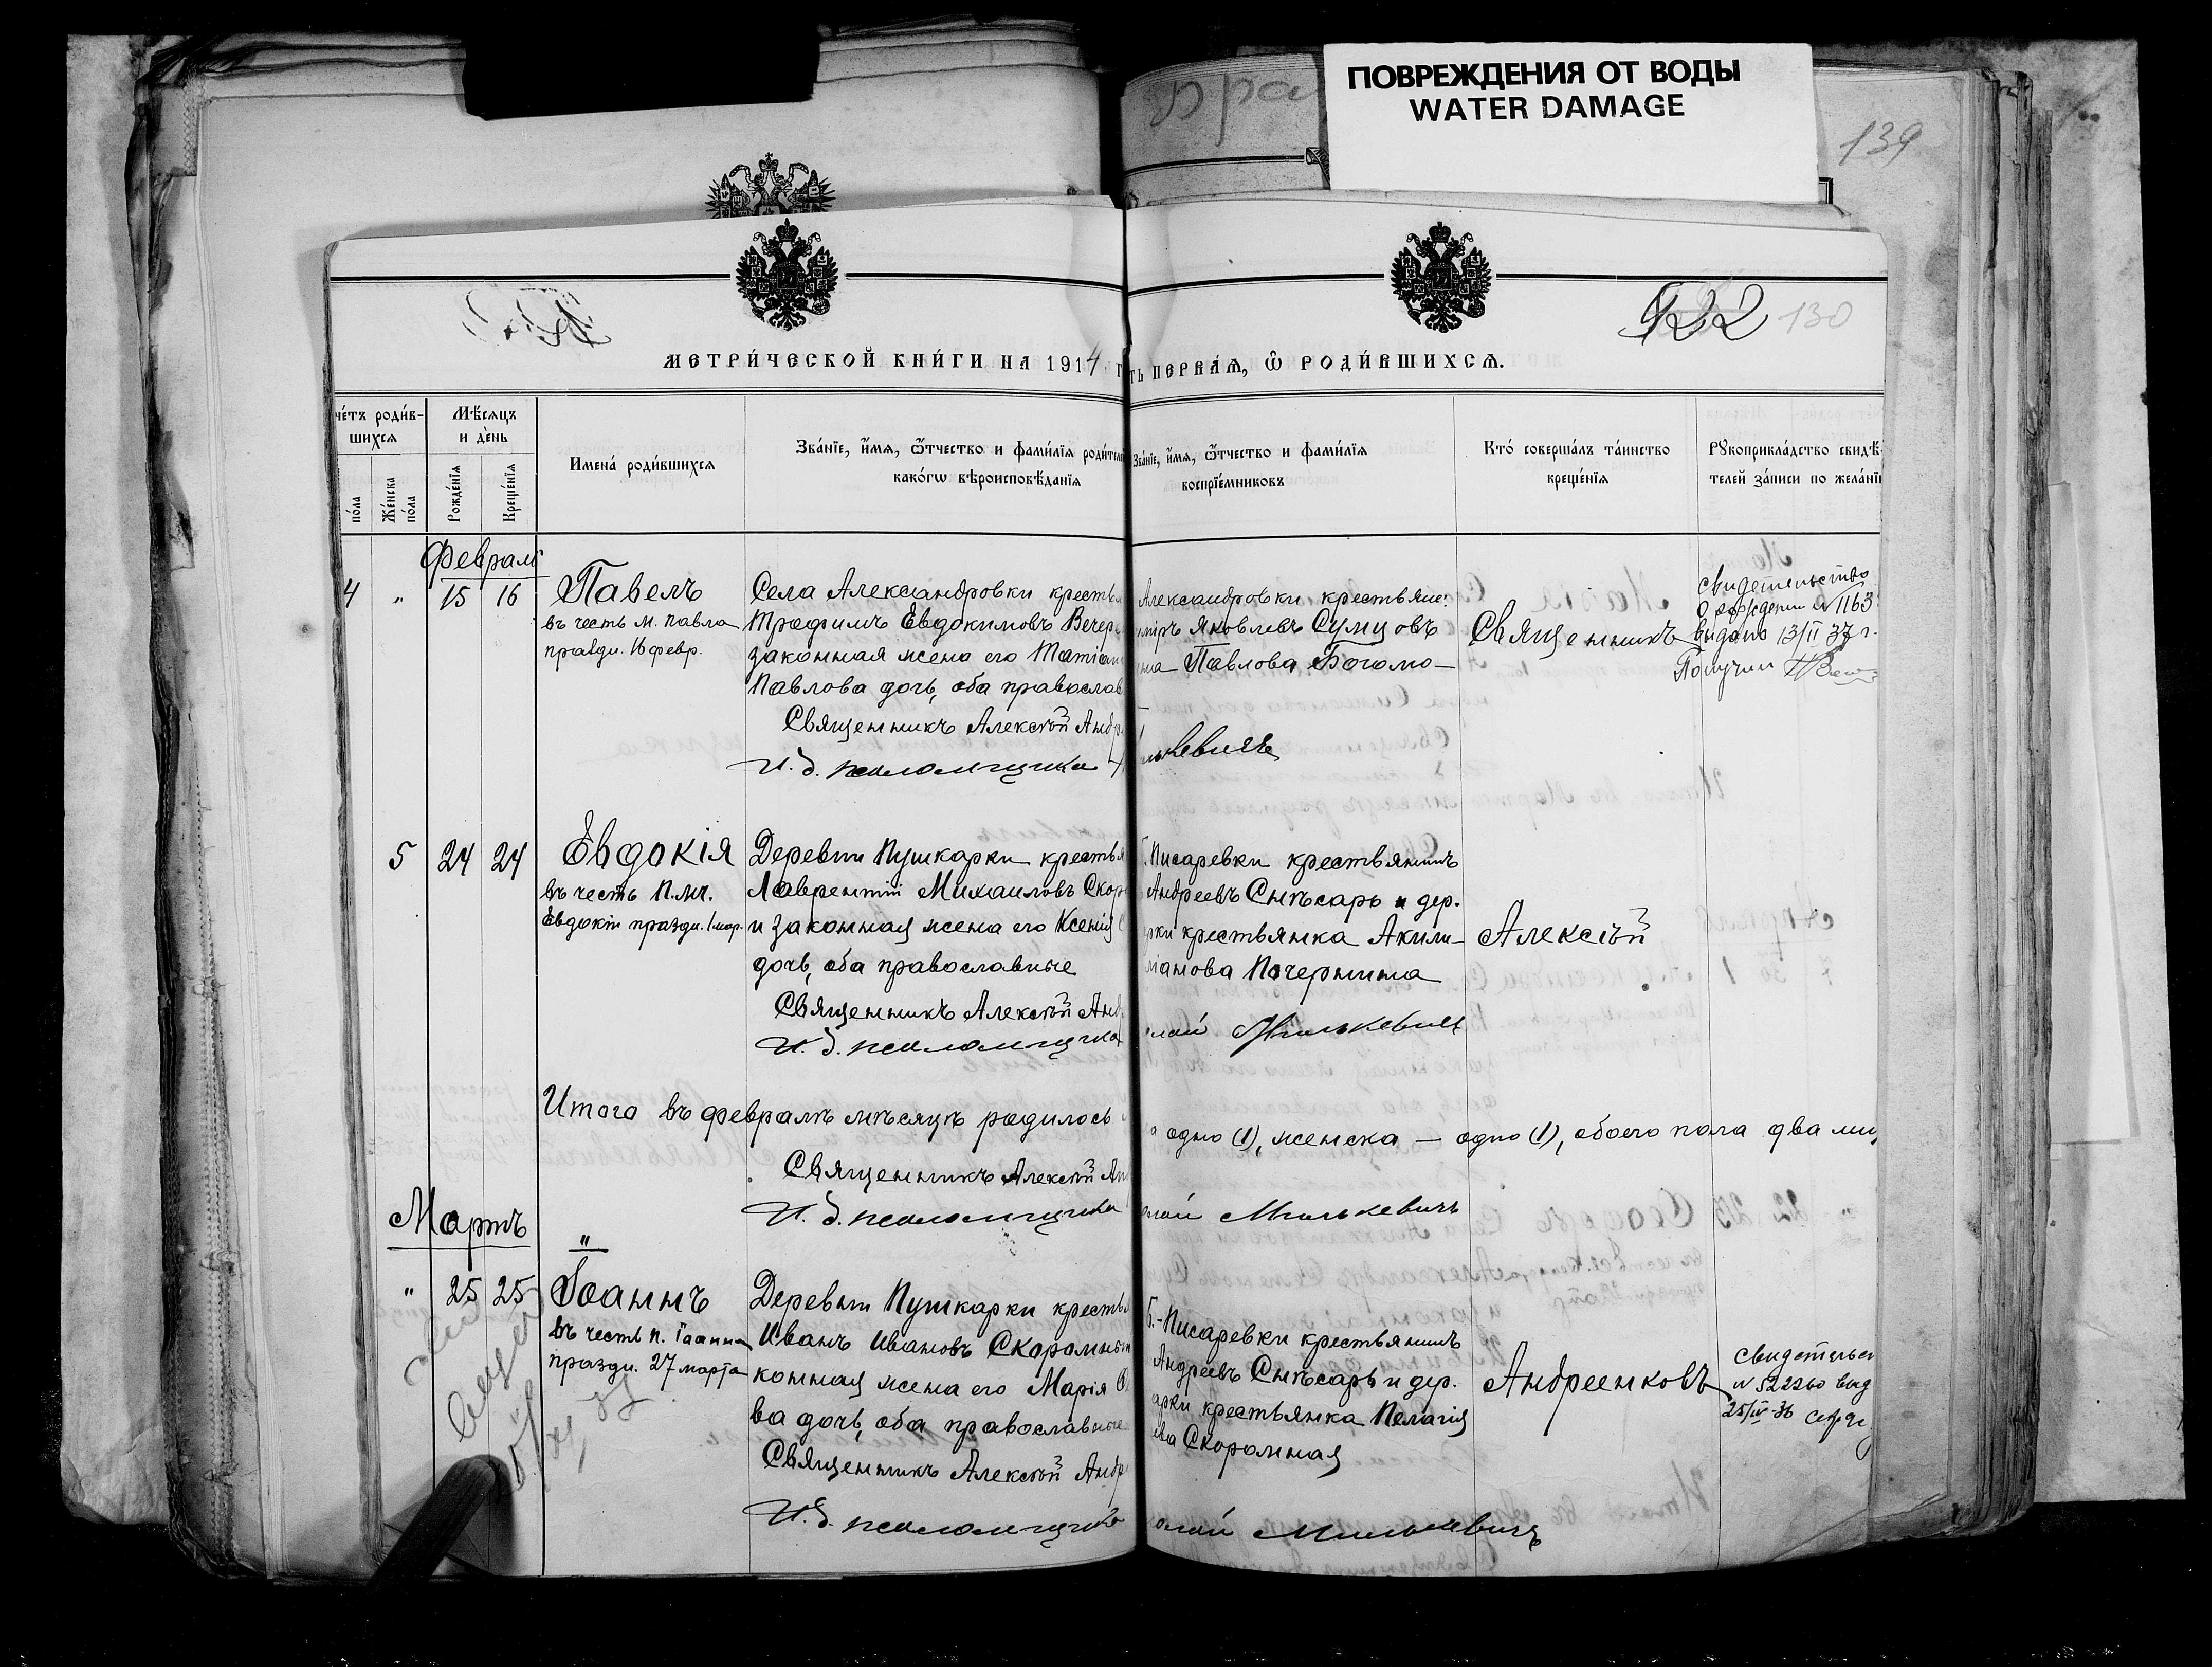 ПОВРЕЖДЕНИЯ ОТ ВОДЫ
WATER DAMAGE
139
122
130
МЕТРИ́ЧЕСКОЙ КНИ́ГИ НА 1914 Г
ТЬ ПЕРВАѦ, Ѿ РОДИ́ВШИХСѦ.
че́тъ роди́в-
шихсѧ
по́ла
Же́нска
по́ла
Мѣ́сяцъ
и де́нь
Рожде́нїѧ
Креще́нїѧ
Имена́ роди́вшихсѧ
Зва́нїе, и́мѧ, ѻ́тчество и фами́лїѧ роди́теле
како́гѡ вѣроисповѣ́данїѧ
Зва́нїе, и́мѧ, ѻ́тчество и фами́лїѧ
воспрїе́мниковъ
Кто́ соверша́лъ та́инство
креще́нїѧ
Рꙋкоприкла́дство свидѣ́
телей за́писи по жела́нї
Февраль
4 " 15 16
Павелъ
въ честь м. Павла
праздн. 16 февр.
Села Александровки кресть
Трофимъ Евдокимовъ Вечер
законная жена его Татіан
Павлова дочь, оба православ
Священникъ Алексѣй Андр
И. д. псаломщика
Александровки крестьяне:
миръ Яковлевъ Сумцовъ
на Павлова Богомо-
лькевичъ
Священникъ
Свидетельство
о рождении № 1163
выдано 13/II 37 г.
Получил
5 24 24
Евдокія
въ честь П. мч.
Евдокіи праздн. 1 мар.
Деревни Пушкарки кресть
Лаврентій Михаиловъ Скор
и законная жена его Ксенія
дочь, оба православные
Священникъ Алексѣй Анд
И. д. псаломщика
Писаревки крестьянинъ
Андреевъ Снѣсарь и дер.
рки крестьянка Акили-
ліанова Почернина
олай Милькевичъ
Алексѣй
Итого въ февралѣ мѣсяцѣ родилось
одно (1), женска — одно (1), обоего пола два мл
Священникъ Алексѣй Ан
И. д. псаломщика
олай Милькевичъ
Мартъ
" 25 25
Іоаннъ
въ честь п. Іоанна
праздн. 27 марта
Деревни Пушкарки кресть
Иванъ Ивановъ Скоромны
конная жена его Марія
ва дочь, оба православные
Священникъ Алексѣй Андр
И. д. псаломщика
Б.-Писаревки крестьянинъ
Андреевъ Снѣсарь и дер.
арки крестьянка Пелагія
ева Скоромная
олай Милькевичъ
Андреенковъ
Свидетельст
№ 522260 выд
25/IV-36